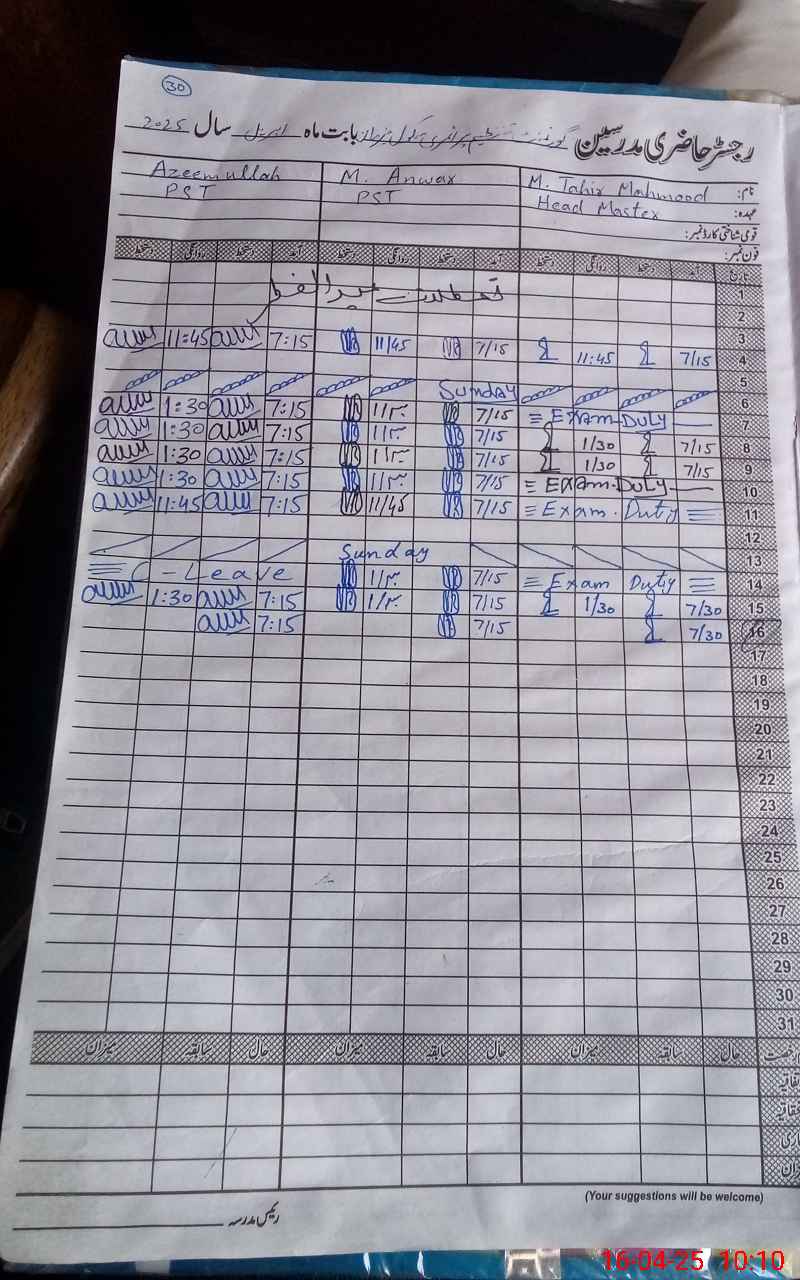 30
رجسٹر حاضری مدرسین گورنمنٹ پرائمری سکول بابت ماہ اپریل سال 2025
نام: M. Tahir Mahmood M. Anwar Azeemullah
عہدہ: Head Master PST PST
قومی شناختی کارڈ نمبر:
فون نمبر:
تاریخ آمد دستخط روانگی دستخط آمد دستخط روانگی دستخط آمد دستخط روانگی دستخط
1 تعطیلات عید الفطر
2
3
4 7/15 11:45 7/15 11/45 7:15 11:45
5
6 Sunday
7 Exam Duty 7/15 1/30 7:15 1:30
8 7/15 1/30 7/15 1/30 7:15 1:30
9 7/15 1/30 7/15 1/30 7:15 1:30
10 Exam Duty 7/15 1/30 7:15 1:30
11 Exam Duty 7/15 11/45 7:15 11:45
12
13 Sunday
14 Exam Duty 7/15 1/30 C-Leave
15 7/30 1/30 7/15 1/30 7:15 1:30
16 7/30 7/15 7:15
17
18
19
20
21
22
23
24
25
26
27
28
29
30
31
حال سابقہ میزان حال سابقہ میزان حال سابقہ میزان
(Your suggestions will be welcome)
رئیس مدرسہ
16-04-25 10:10